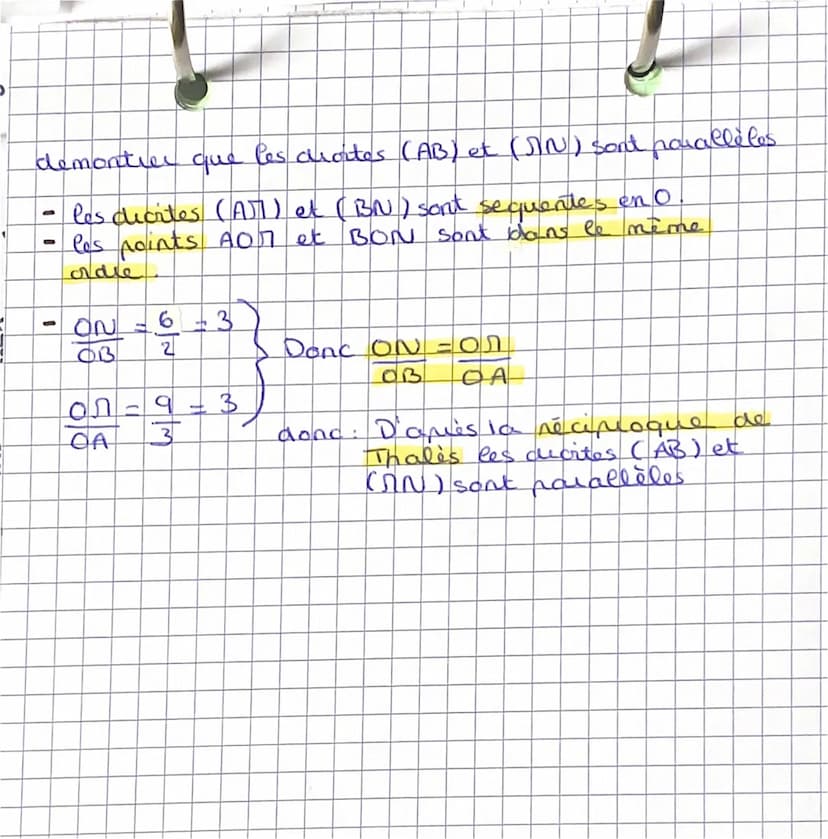 demontrer que les droites (AB) et (MN) sont parallèles
- les droites (AM) et (BN) sont sequentes en O.
- les points AOM et BON sont dans le même
ordre.
- ON/OB = 6/2 = 3
Donc ON/OB = OM/OA
OM/OA = 9/3 = 3
donc: D'après la réciproque de
Thalès les droites (AB) et
(MN) sont parallèles